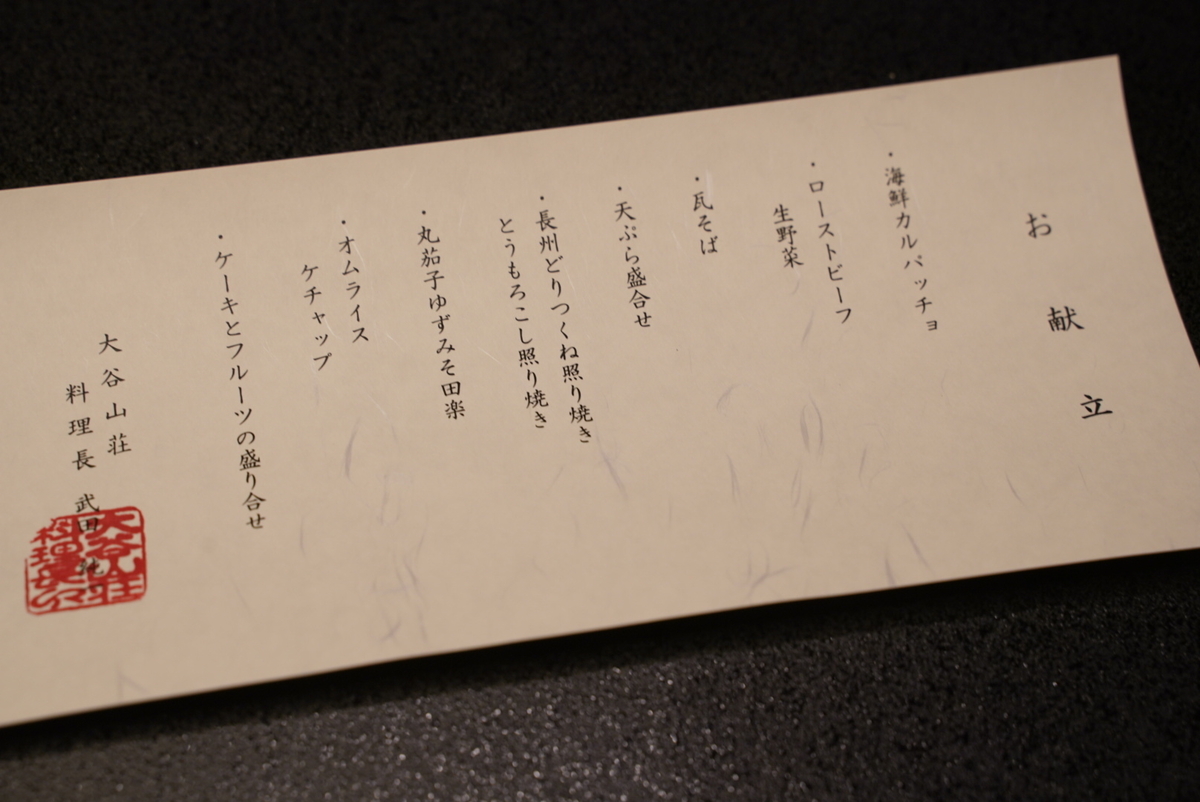 お献立
・海鮮カルパッチョ
・ローストビーフ
生野菜
・瓦そば
・天ぷら盛合せ
・長州どりつくね照り焼き
とうもろこし照り焼き
・丸茄子ゆずみそ田楽
・オムライス
ケチャップ
・ケーキとフルーツの盛り合せ
大谷山荘
料理長 武田
大谷山荘
料理長